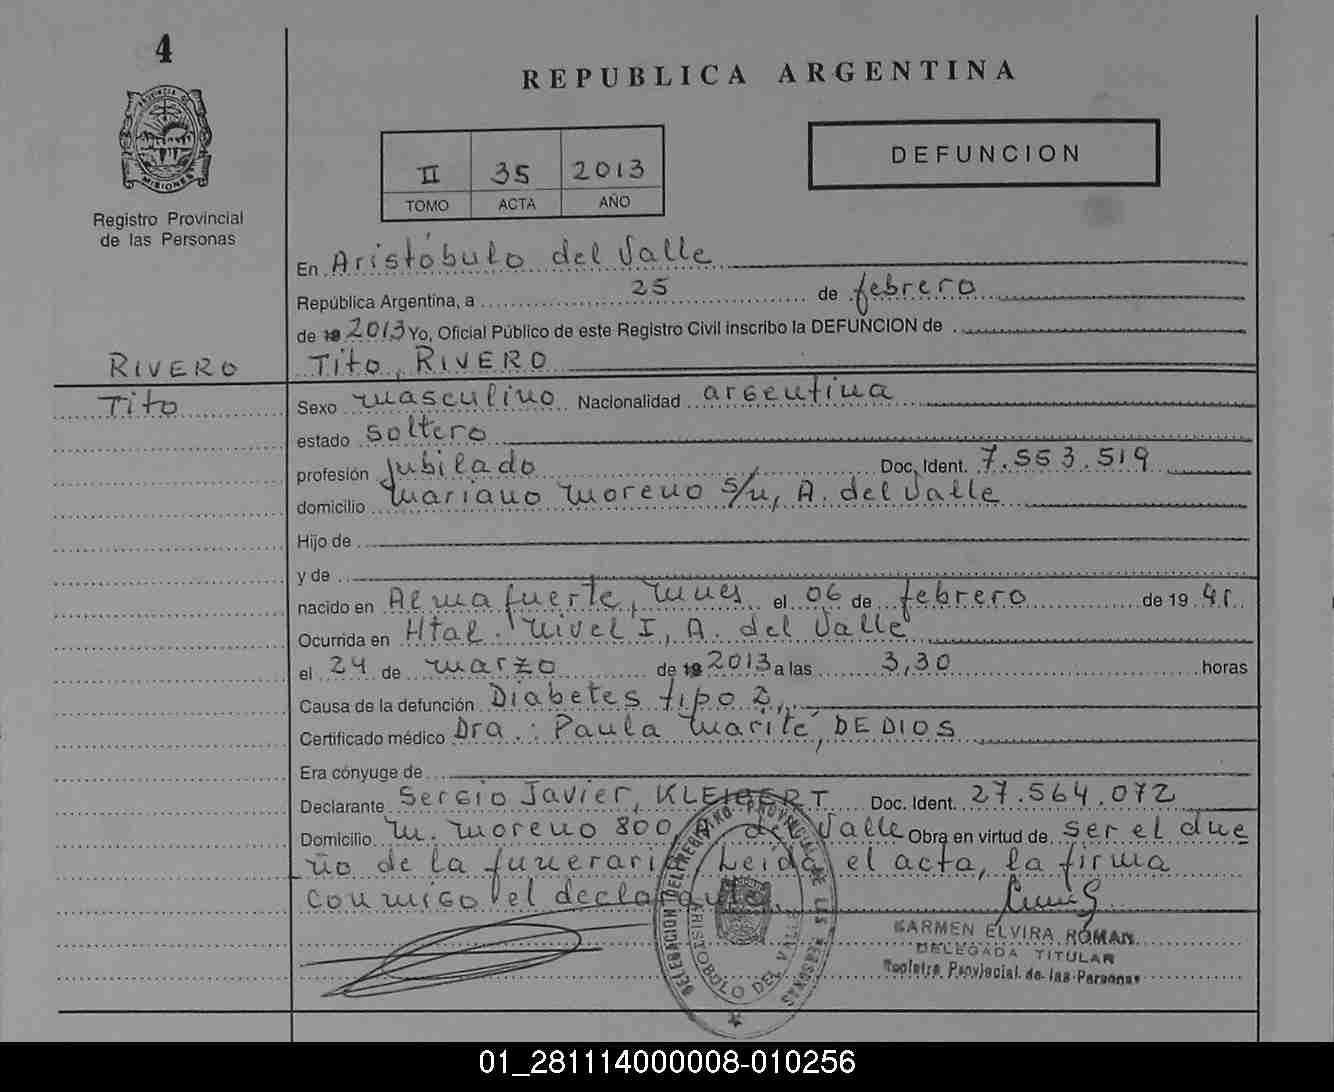 4
PROVINCIA DE
MISIONES
Registro Provincial
de las Personas
REPUBLICA ARGENTINA
II 35 2013
TOMO ACTA AÑO
DEFUNCION
En Aristóbulo del Valle
República Argentina, a 25 de febrero
de 19 2013 Yo, Oficial Público de este Registro Civil inscribo la DEFUNCION de
RIVERO Tito, RIVERO
Tito Sexo masculino Nacionalidad argentina
estado soltero
profesión jubilado Doc. Ident. 7.553.519
domicilio Mariano Moreno s/n, A. del Valle
Hijo de
y de
nacido en Alma fuerte, Mnes el 06 de febrero de 19 41
Ocurrida en Htal. Nivel I, A. del Valle
el 24 de marzo de 19 2013 a las 3,30 horas
Causa de la defunción Diabetes tipo 2,
Certificado médico Dra.: Paula Marité, DE DIOS
Era cónyuge de
Declarante Sergio Javier, KLEIBERT Doc. Ident. 27.564.072
Domicilio M. Moreno 800, A. del Valle Obra en virtud de ser el due
ño de la funeraria. Leída el acta, la firma
conmigo el declarante.
DELEGACION DEL REGISTRO PROVINCIAL DE LAS PERSONAS
ARISTOBULO DEL VALLE
KARMEN ELVIRA ROMAN
DELEGADA TITULAR
Registro Provincial de las Personas
01_281114000008-010256